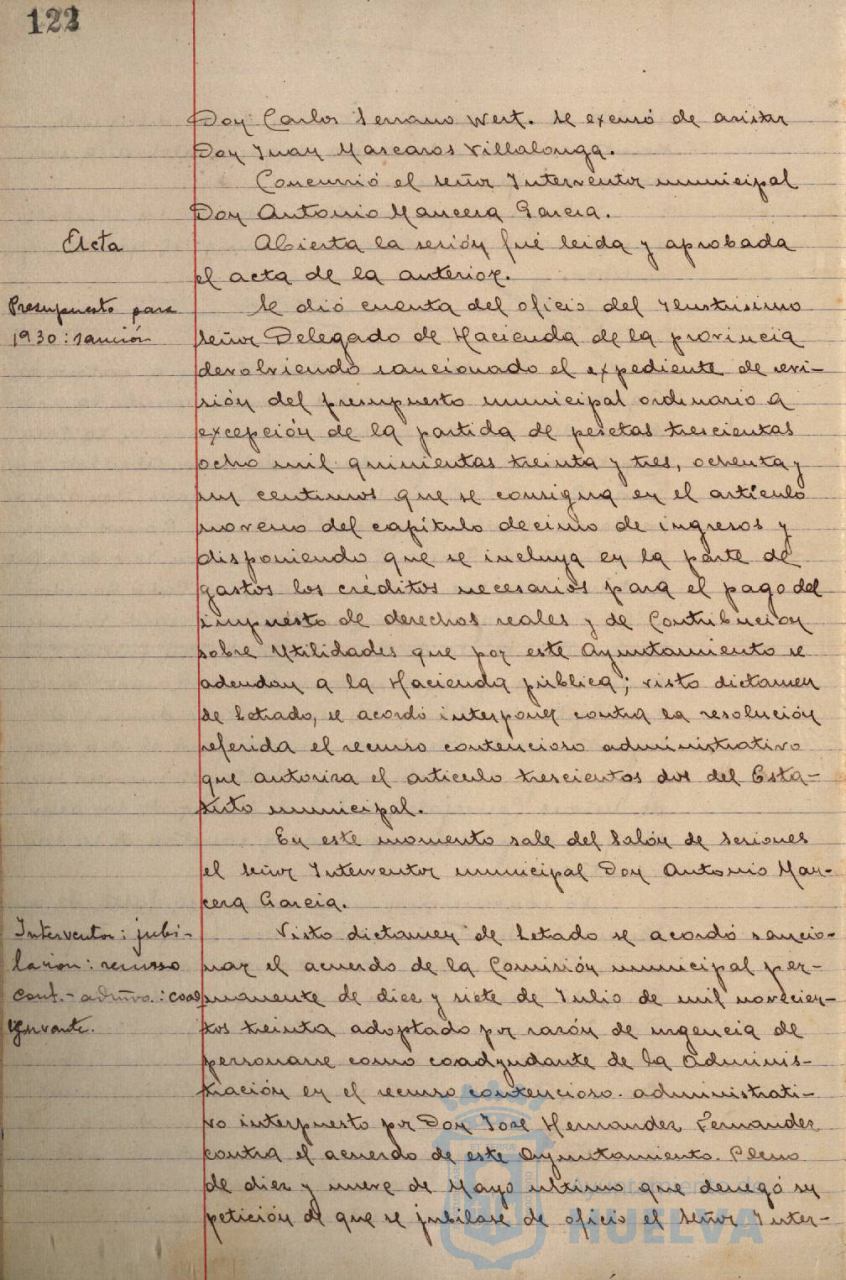 122
Don Carlos Serrano Wert. Se excusó de asistir
Don Juan Mascaros Villalonga.
Concurrió el señor Interventor municipal
Don Antonio Mancera Garcia.
Acta
Abierta la sesión fué leida y aprobada
el acta de la anterior.
Presupuesto para
1930: sanción
Se dió cuenta del oficio del Ilustrisimo
señor Delegado de Hacienda de la provincia
devolviendo sancionado el expediente de revi-
sión del presupuesto municipal ordinario a
excepción de la partida de pesetas trescientas
ocho mil quinientas treinta y tres, ochenta y
un centimos que se consigna en el artículo
noveno del capítulo decimo de ingresos y
disponiendo que se incluya en la parte de
gastos los créditos necesarios para el pago del
impuesto de derechos reales y de Contribucion
sobre Utilidades que por este Ayuntamiento se
adeudan a la Hacienda pública; visto dictamen
de Letrado, se acordó interponer contra la resolución
referida el recurso contencioso administrativo
que autoriza el articulo trescientos dos del Esta-
tuto municipal.
En este momento sale del Salón de sesiones
el señor Interventor municipal Don Antonio Man-
cera Garcia.
Interventor: jubi-
lacion: recurso
cont.-admvo.: coad
yuvante.
Visto dictamen de Letado se acordó sancio-
nar el acuerdo de la Comisión municipal per-
manente de diez y siete de Julio de mil novecien-
tos treinta adoptado por razón de urgencia de
personarse como coadyudante de la Adminis-
tración en el recurso contencioso-administrati-
vo interpuesto por Don José Hernandez Fernandez
contra el acuerdo de este Ayuntamiento Pleno
de diez y nueve de Mayo ultimo que denegó su
petición de que se jubilase de oficio el señor Inter-
HUELVA